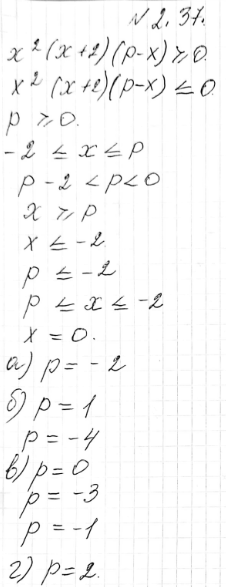 N 2.37.
x² (x+2)(p-x) ≥ 0
x² (x+2)(p-x) ≤ 0
p ≥ 0.
-2 ≤ x ≤ p
p-2 < p < 0
x ≥ p
x ≤ -2
p ≤ -2
p ≤ x ≤ -2
x = 0.
а) p = -2
б) p = 1
p = -4
в) p = 0
p = -3
p = -1
г) p = 2.